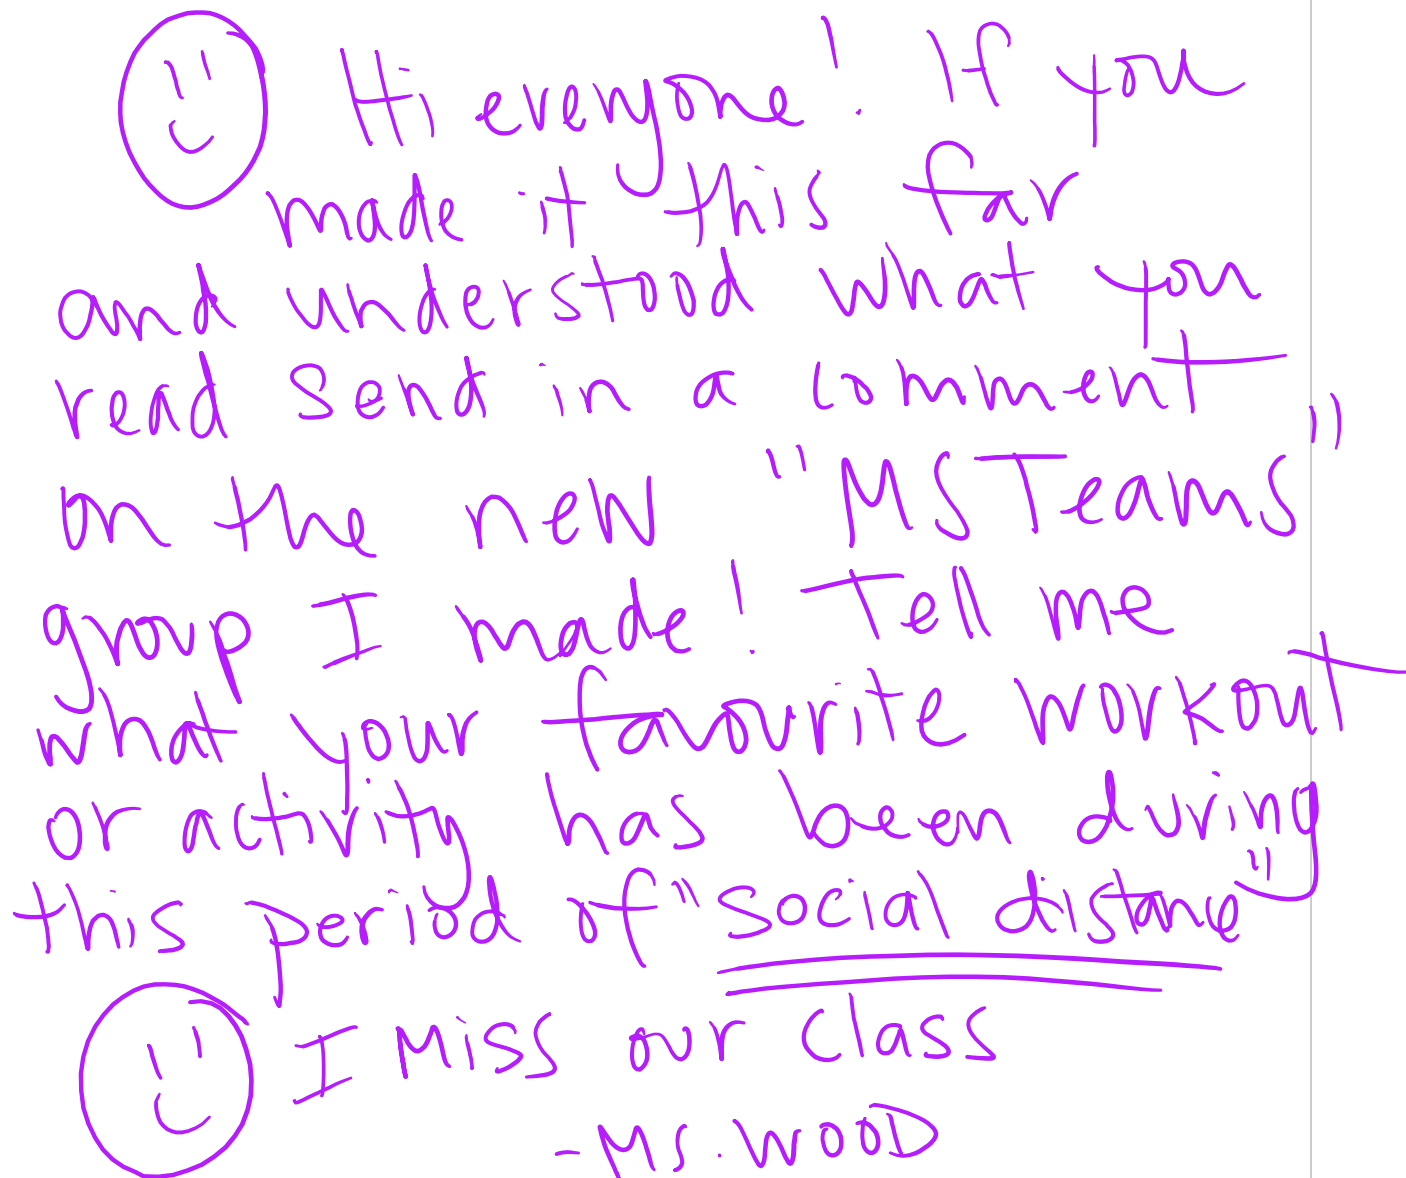 Hi everyone! If you
made it this far
and understood what you
read send in a comment
on the new "MS Teams"
group I made! Tell me
what your favourite workout
or activity has been during
this period of "social distance"
I Miss our class
-Ms. WOOD